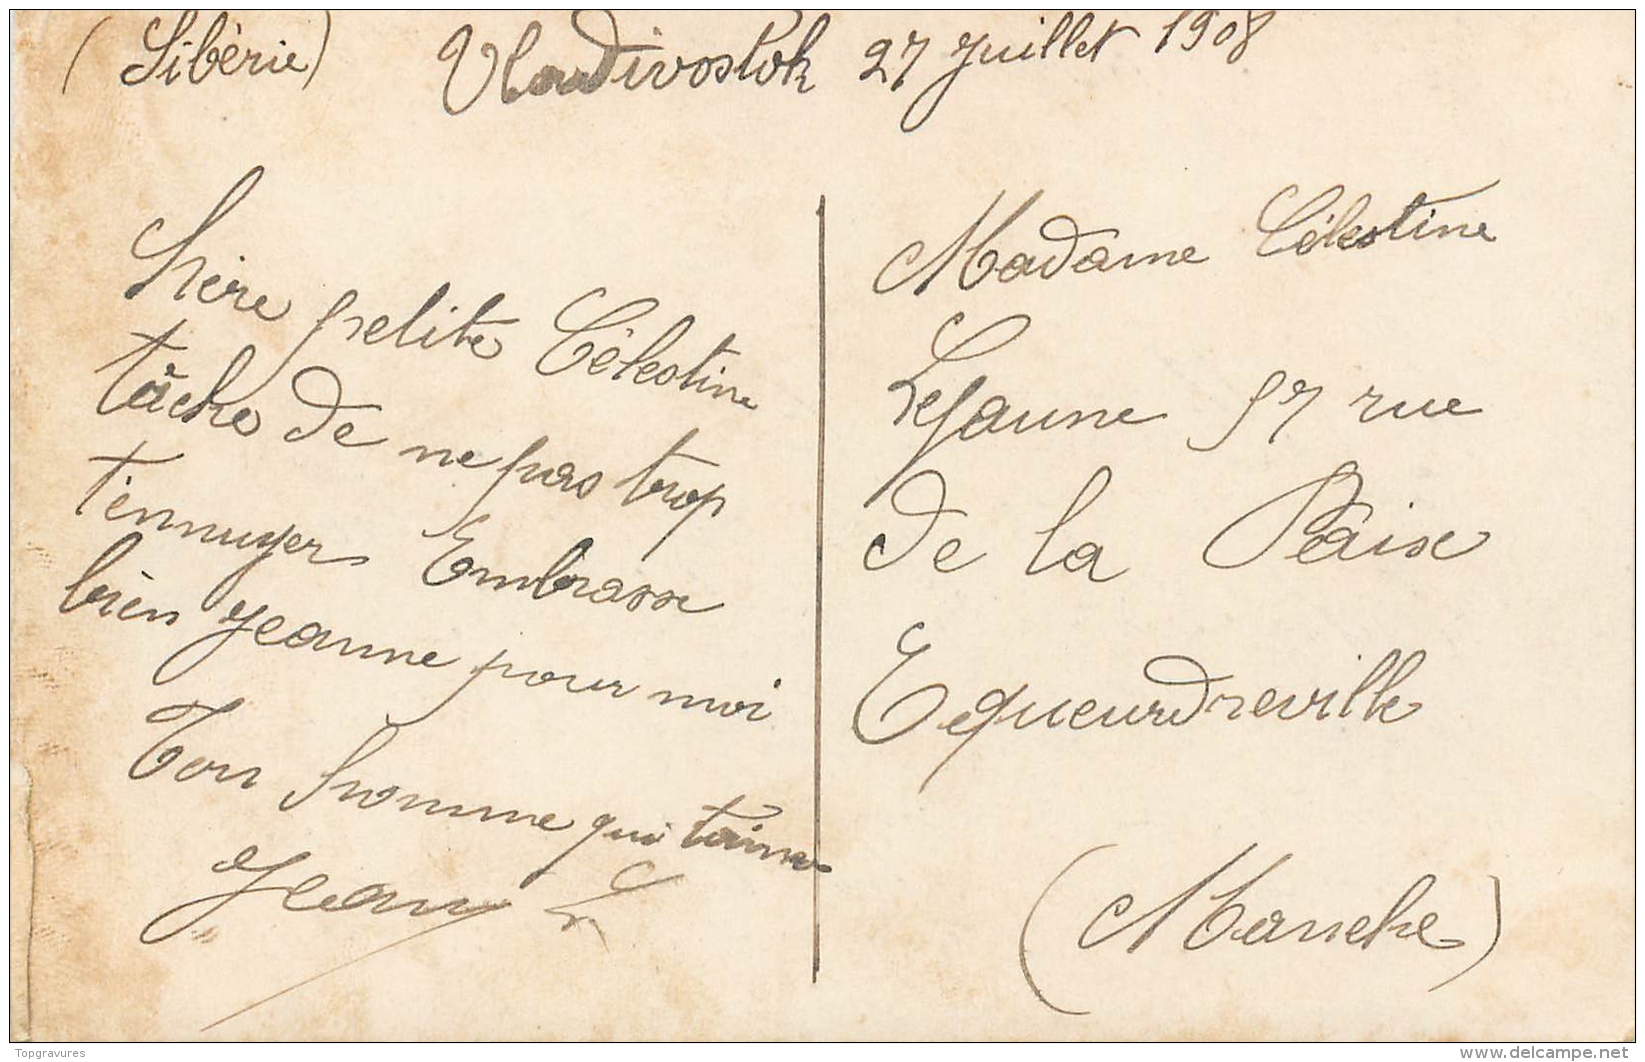 (Sibèrie) Vladivostok 27 Juillet 1908
Chère petite Célestine
tâche de ne pas trop
t'ennuyer Embrasse
bien Jeanne pour moi
Ton homme qui t'aime
Jean L
Madame Célestine
Lejaune 57 rue
de la Paix
Equeurdreville
(Manche)
Topgravures
delcampe.net